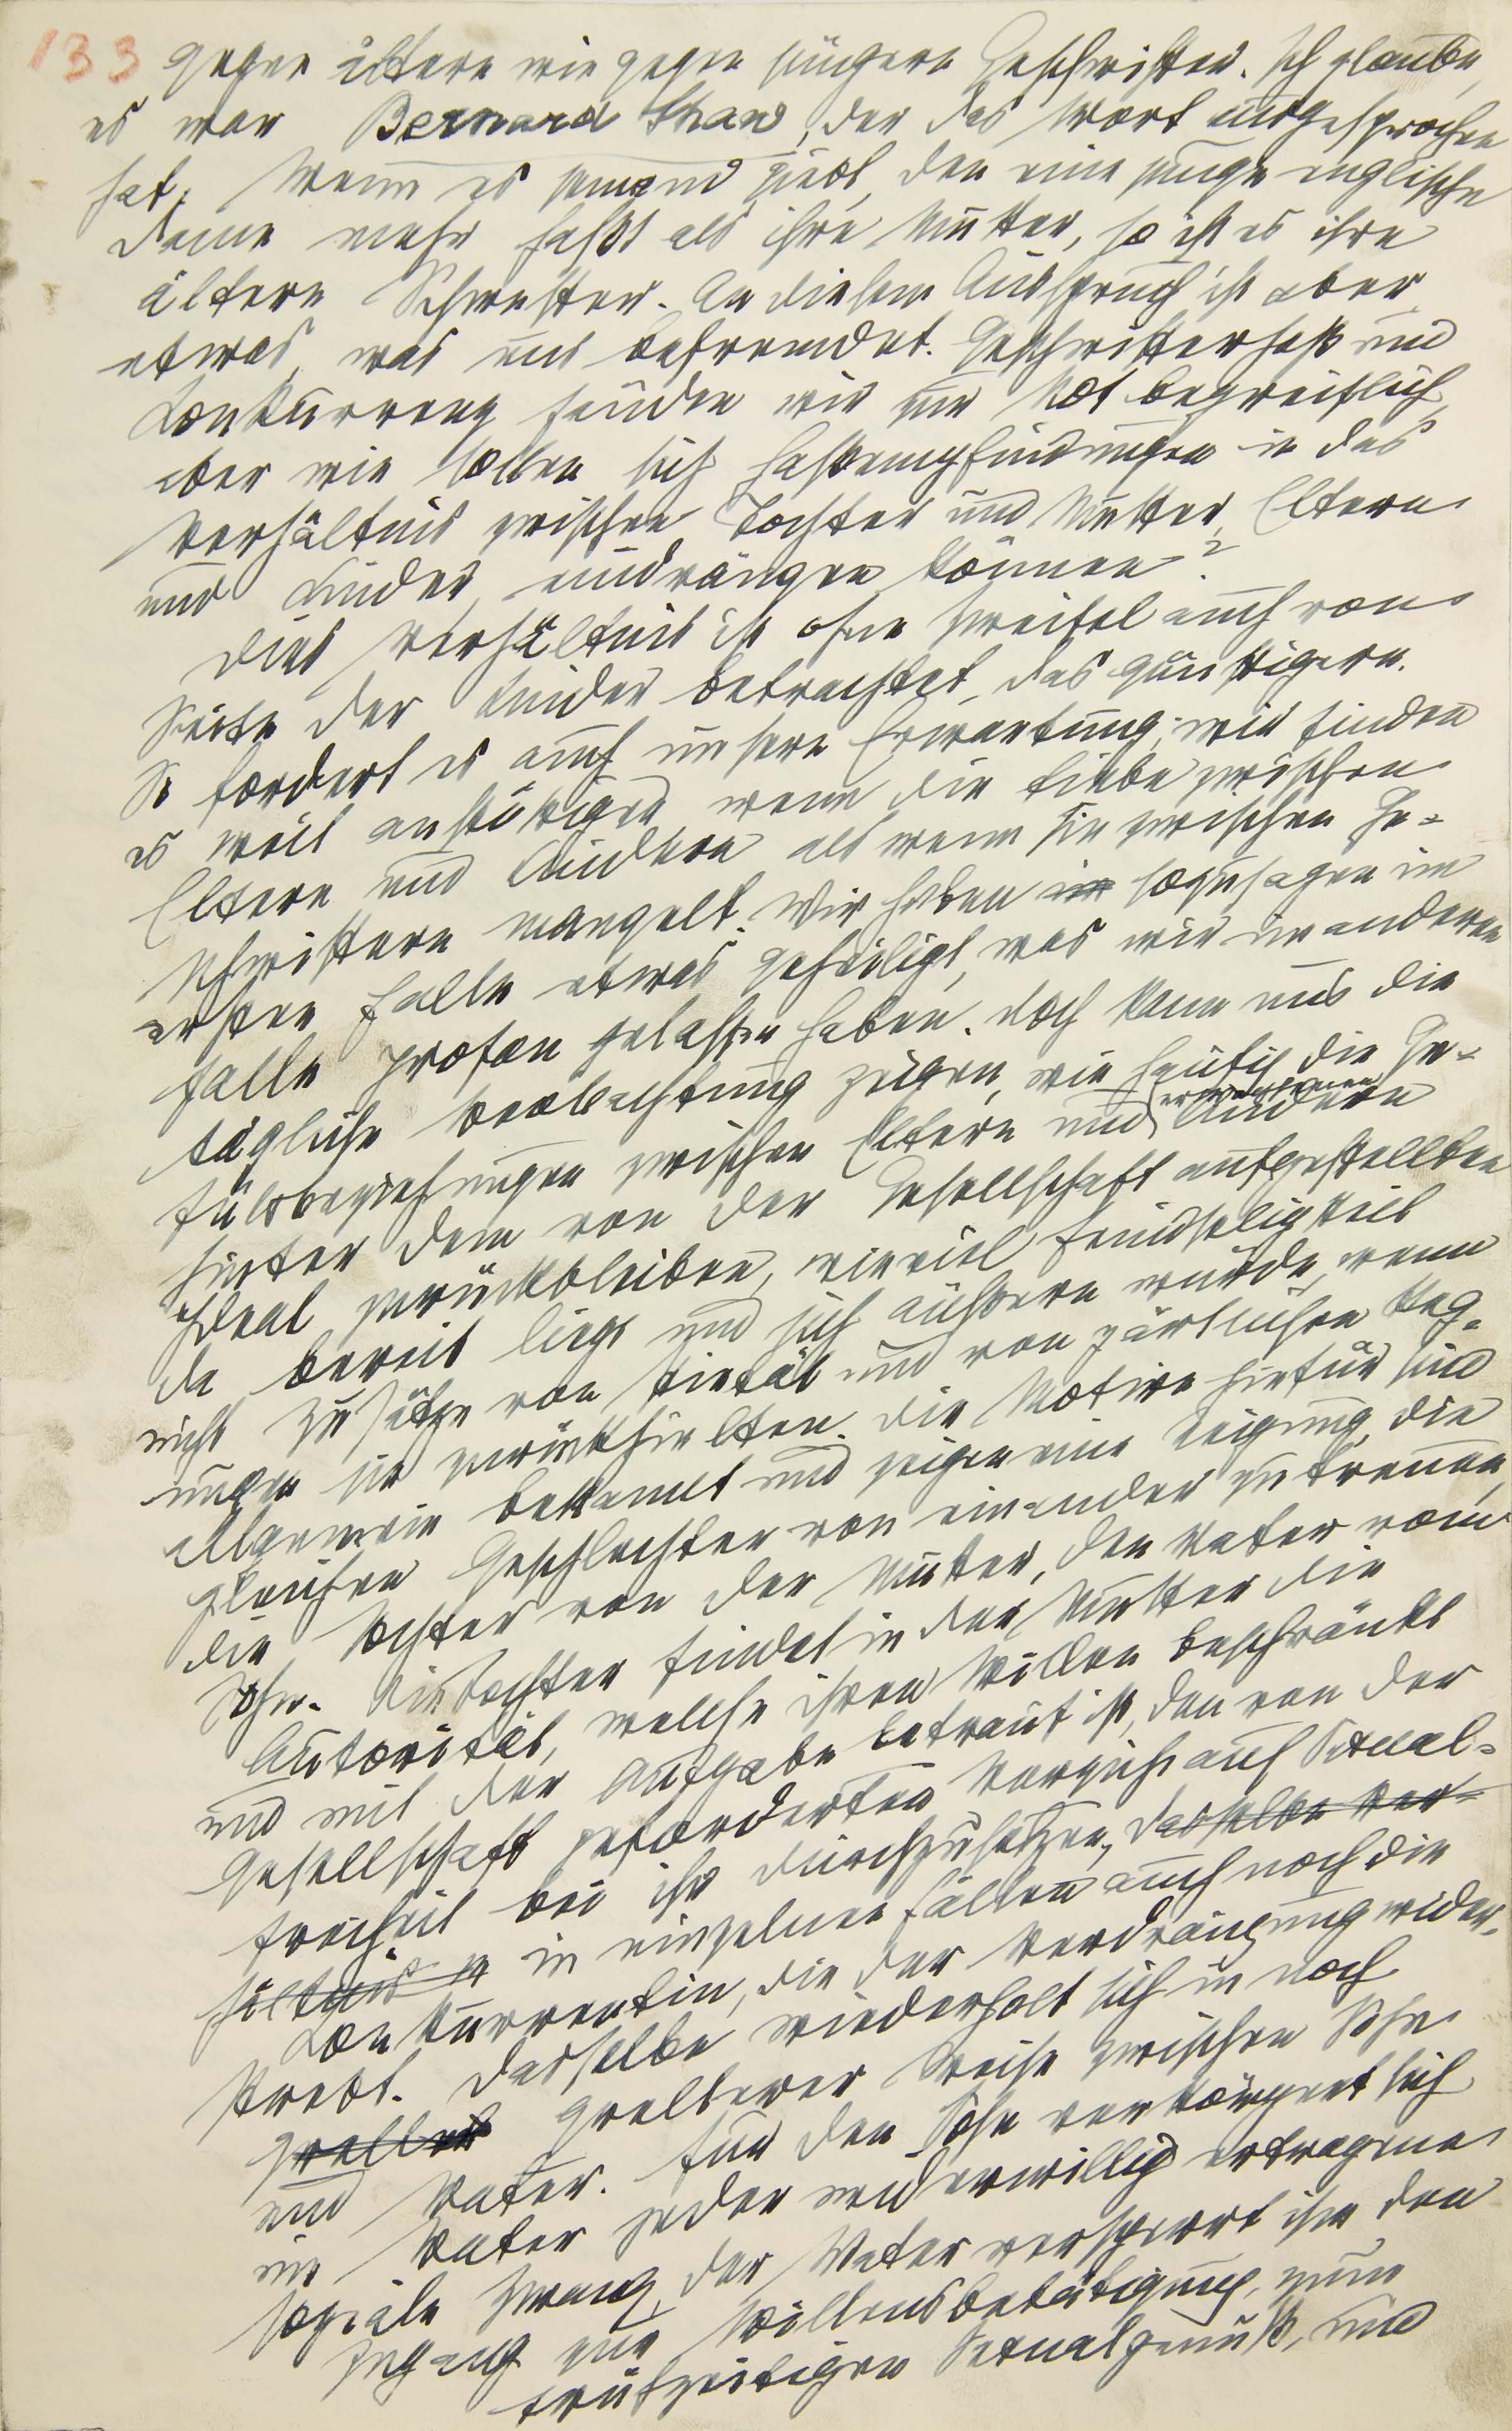 133 gegen ältere wie gegen jüngere Geschwister. Ich glaube,
es war Bernard Shaw, der das Wort ausgesprochen
hat: Wenn es jemand giebt, den eine junge englische
Dame mehr haßt als ihre Mutter, so ist es ihre
ältere Schwester. An diesem Ausspruch ist aber
etwas, was uns befremdet. Geschwisterhaß und
Konkurrenz fänden wir zur Not begreiflich,
aber wie sollen sich Haßempfindungen in das
Verhältnis zwischen Tochter und Mutter, Eltern
und Kinder, eindrängen können?
Dies Verhältnis ist ohne Zweifel auch von
Seite der Kinder betrachtet, das günstigere.
So fordert es auch unsere Erwartung; wir finden
es weit anstößiger, wenn die Liebe zwischen
Eltern und Kindern als wenn sie zwischen Ge-
schwistern mangelt. Wir haben im sozusagen im
ersten Falle etwas geheiligt, was wir im anderen
Falle profan gelassen haben. Doch kann uns die
tägliche Beobachtung zeigen, wie häufig die Ge-
fülsbeziehungen zwischen Eltern und erwachsenen Kindern
hinter dem von der Gesellschaft aufgestellten
Ideal zurückbleiben, wieviel Feindseligkeit
da bereit liegt und sich äußern würde, wenn
nicht Zusätze von Pietät und von zärtlichen Reg-
ungen sie zurückhielten. Die Motive hiefür sind
allgemein bekannt und zeigen eine Neigung, die
gleichen Geschlechter von einander zu trennen,
die Tochter von der Mutter, den Vater vom
Sohn. Die Tochter findet in der Mutter die
Autorität, welche ihren Willen beschränkt
und mit der Aufgabe betraut ist, den von der
Gesellschaft geforderten Verzicht auf Sexual-
freiheit bei ihr durchzusetzen, dasselbe Ver-
hältnis in einzelnen Fällen auch noch die
Konkurrentin, die der Verdrängung wider-
strebt. Dasselbe wiederholt sich in noch
greller grellerer Weise zwischen Sohn
und Vater. Für den Sohn verkörpert sich
im Vater jeder widerwillig ertragene
soziale Zwang; der Vater versperrt ihm den
Zugang zur Willensbetätigung, zum
frühzeitigen Sexualgenuß, und